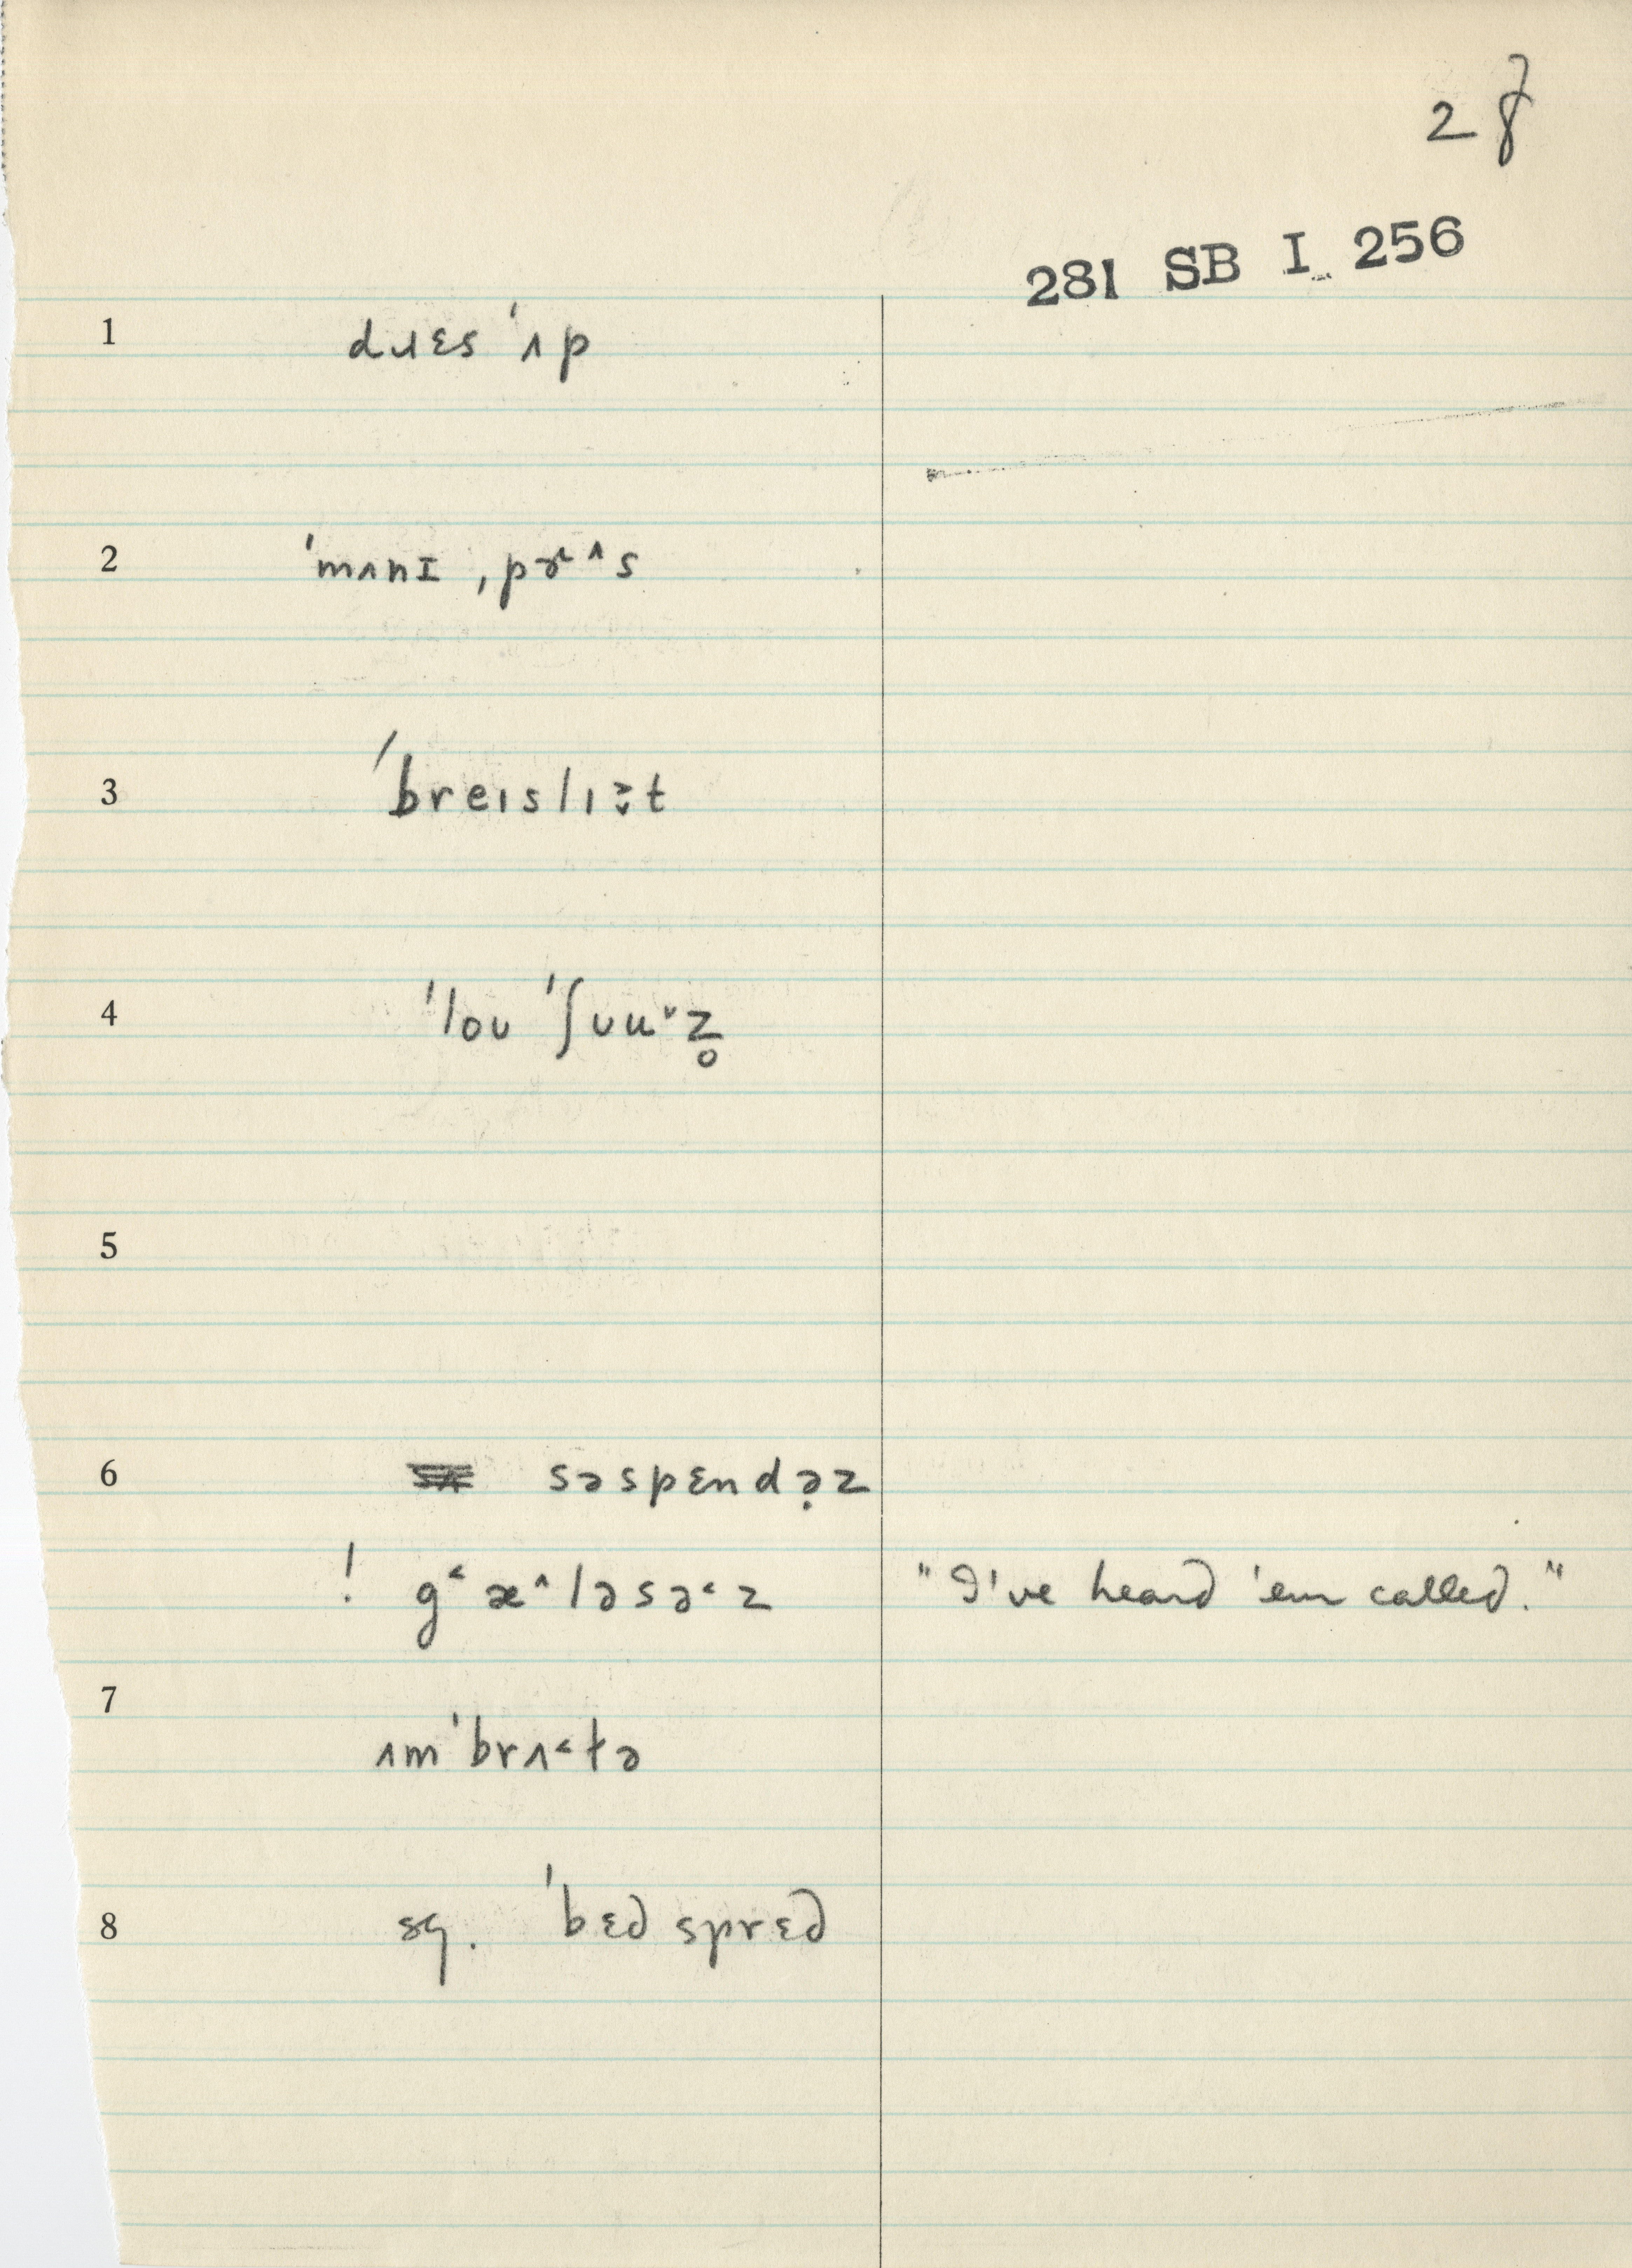 28
281 SB I 256
1 dɹɛs ˈʌp
2 ˈmʌnɪ ˌpɚ˄s
3 ˈbreɪslɪə̬t
4 ˈloʊ ˈʃʊu˅z̥
5
6 səspɛndə̣z
! g˂æ˄ləsə˂z "I've heard 'em called."
7
ʌmˈbrʌ˂ɫə
8 sg. ˈbɛd sprɛd